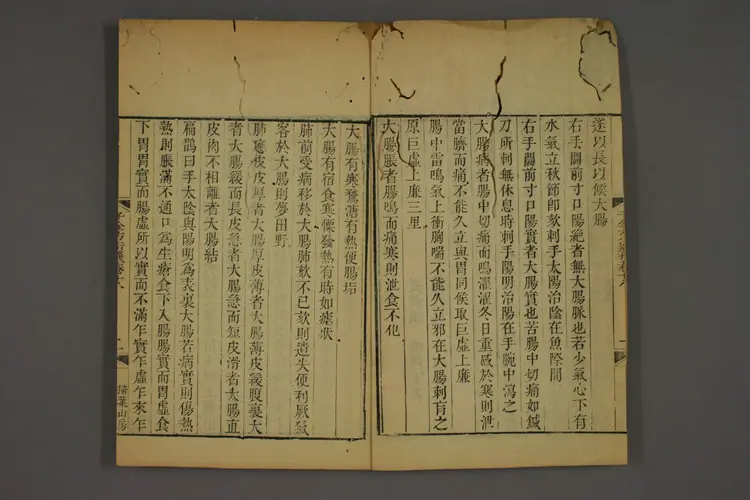 遂以長以候大腸
右手關前寸口陽絕者無大腸脈也苦少氣心下有
水氣立秋節即欬刺手太陰治陰在魚際間
右手關前寸口陽實者大腸實也苦腸中切痛如鍼
刀所刺無休息時刺手陽明治陽在手腕中瀉之
大腸病者腸中切痛而鳴濯濯冬日重感於寒則泄
當臍而痛不能久立與胃同候取巨虛上廉
腸中雷鳴氣上衝胸喘不能久立邪在大腸刺肓之
原巨虛上廉三里
大腸脹者腸鳴而痛寒則泄食不化
大腸有寒鶩溏有熱便腸垢
大腸有宿食寒慄發熱有時如瘧狀
肺前受病移於大腸肺欬不已欬則遺失便利厥氣
客於大腸則夢田野
肺應皮皮厚者大腸厚皮薄者大腸薄皮緩腹裏大
者大腸緩而長皮急者大腸急而短皮滑者大腸直
皮肉不相離者大腸結
扁鵲曰手太陰與陽明為表裏大腸若病實則傷熱
熱則脹滿不通口為生瘡食下入腸腸實而胃虛食
下胃胃實而腸虛所以實而不滿乍實乍虛乍來乍
掃葉山房